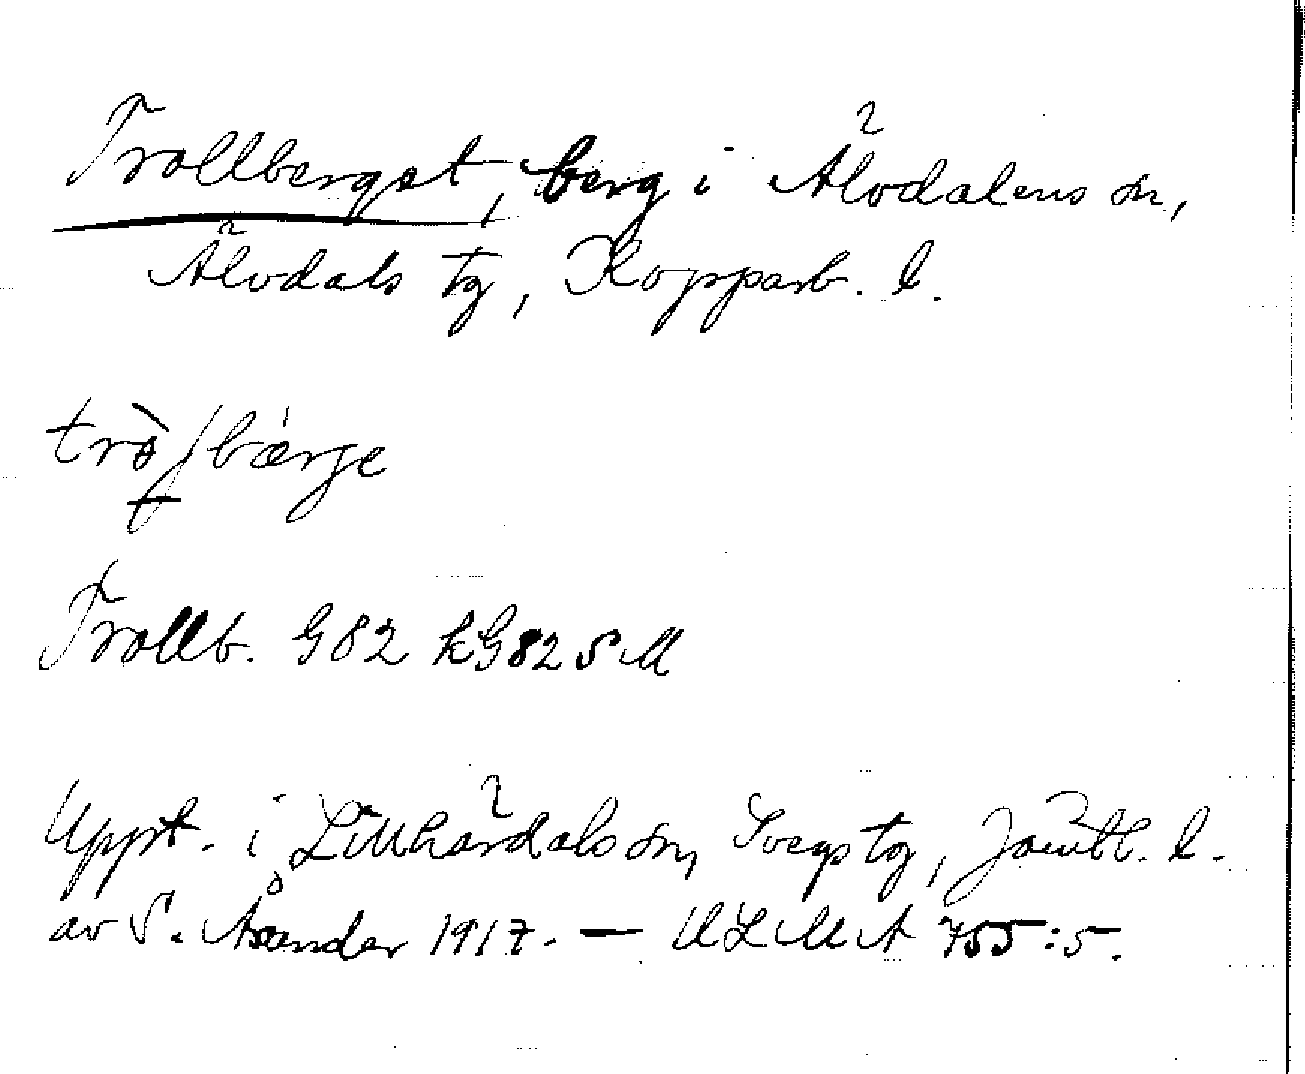 Trollberget, berg i Älvdalens sn,
Älvdals tg, Kopparb. l.
Trollb. G82 kG82 S M
Uppt. i Lillhärdals sn, Svegs tg, Jämtl. l.
av S. 1917. — ULMA 755:5.